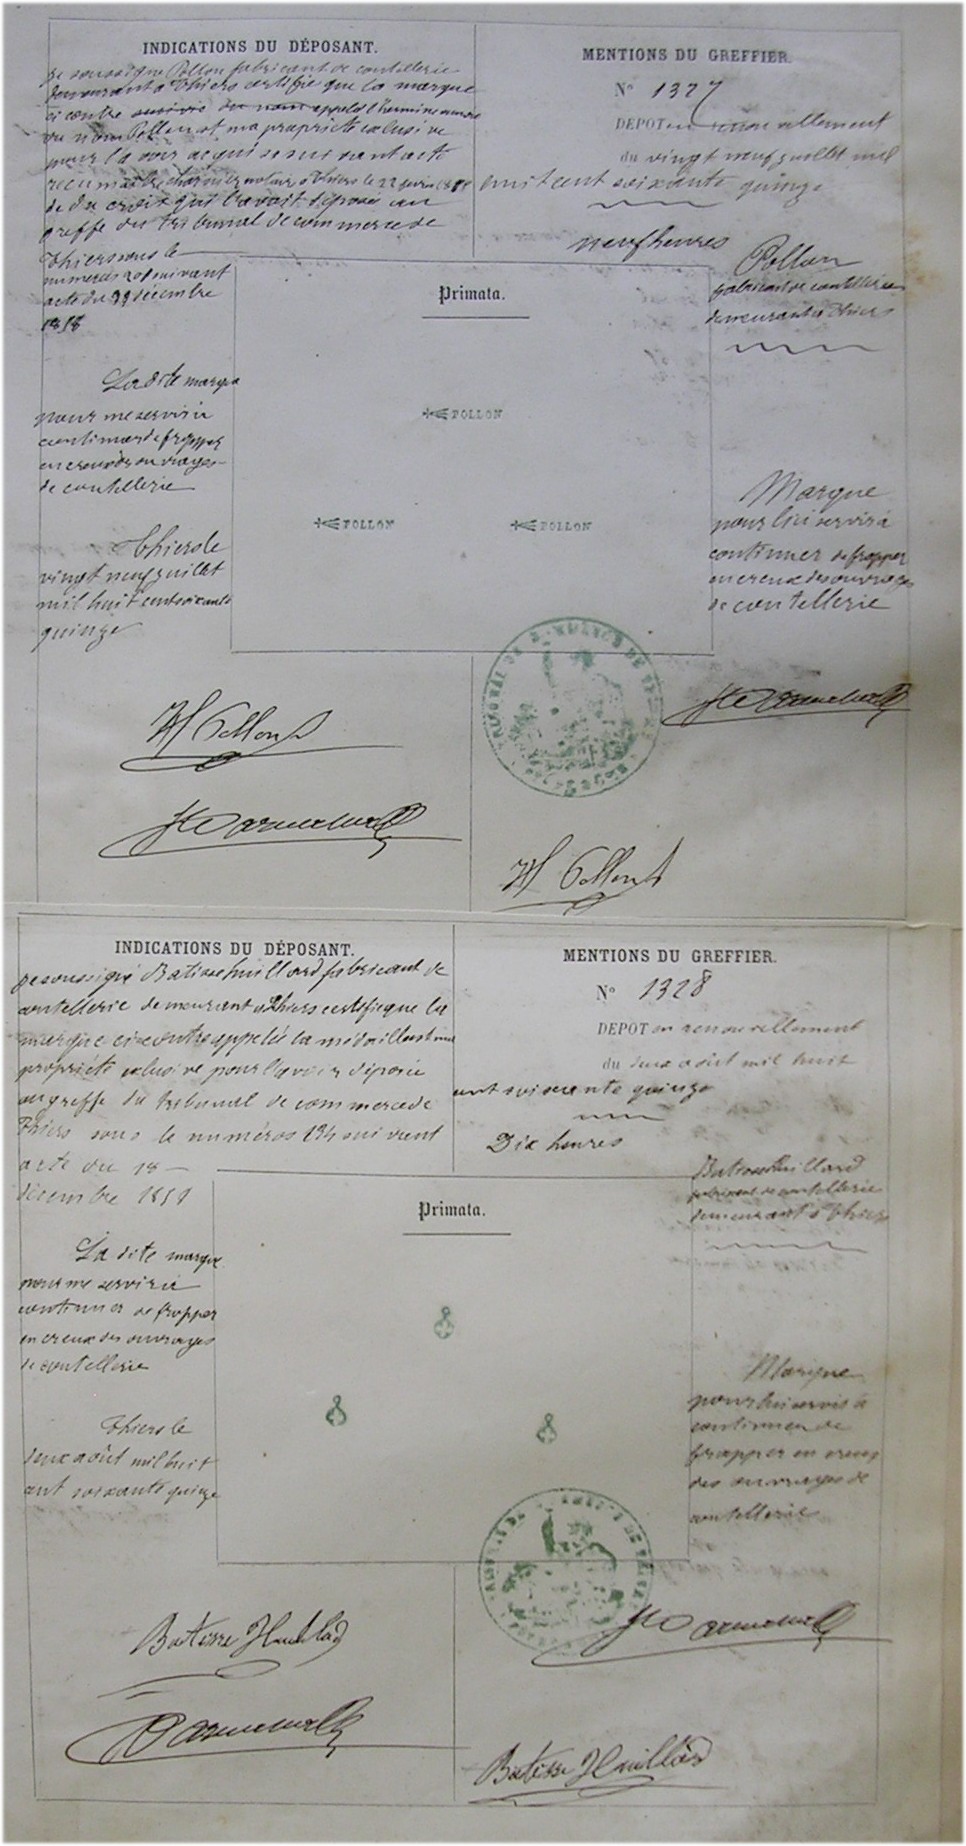 INDICATIONS DU DÉPOSANT.
je soussigné Pollon fabricant de coutellerie
demeurant à Thiers certifie que la marque
ci contre suivie du nom appelée l'hermine
du nom Pollon est ma propriété exclusive
pour l'avoir acquise suivant acte
reçu maître notaire à Thiers le 22
de qui l'avait déposée au
greffe du tribunal de commerce de
Thiers sous le
numéros suivant
acte du décembre
1858
La dite marque
pour me servir à
continuer de frapper
en creux des ouvrages
de coutellerie
Thiers le
vingt neuf juillet
mil huit cent soixante
quinze
Pollon
MENTIONS DU GREFFIER.
N° 1327
DEPOT en renouvellement
du vingt neuf juillet mil
huit cent soixante quinze
neuf heures
Pollon
fabricant de coutellerie
demeurant à Thiers
Primata.
POLLON
POLLON
POLLON
Marque
pour lui servir à
continuer de frapper
en creux des ouvrages
de coutellerie
TRIBUNAL DE
Pollon
INDICATIONS DU DÉPOSANT.
je soussigné Batisse huillard fabricant de
coutellerie demeurant à Thiers certifie que la
marque ci contre appelée la médaille est ma
propriété exclusive pour l'avoir déposée
au greffe du tribunal de commerce de
Thiers sous le numéros 194 suivant
acte du 18
décembre 1858
La dite marque
pour me servir à
continuer de frapper
en creux des ouvrages
de coutellerie
Thiers le
deux août mil huit
cent soixante quinze
Batisse Huillard
MENTIONS DU GREFFIER.
N° 1328
DEPOT en renouvellement
du deux août mil huit
cent soixante quinze
Dix heures
Batisse huillard
fabricant de coutellerie
demeurant à Thiers
Primata.
Marque
pour lui servir à
continuer de
frapper en creux
des ouvrages de
coutellerie
Batisse Huillard